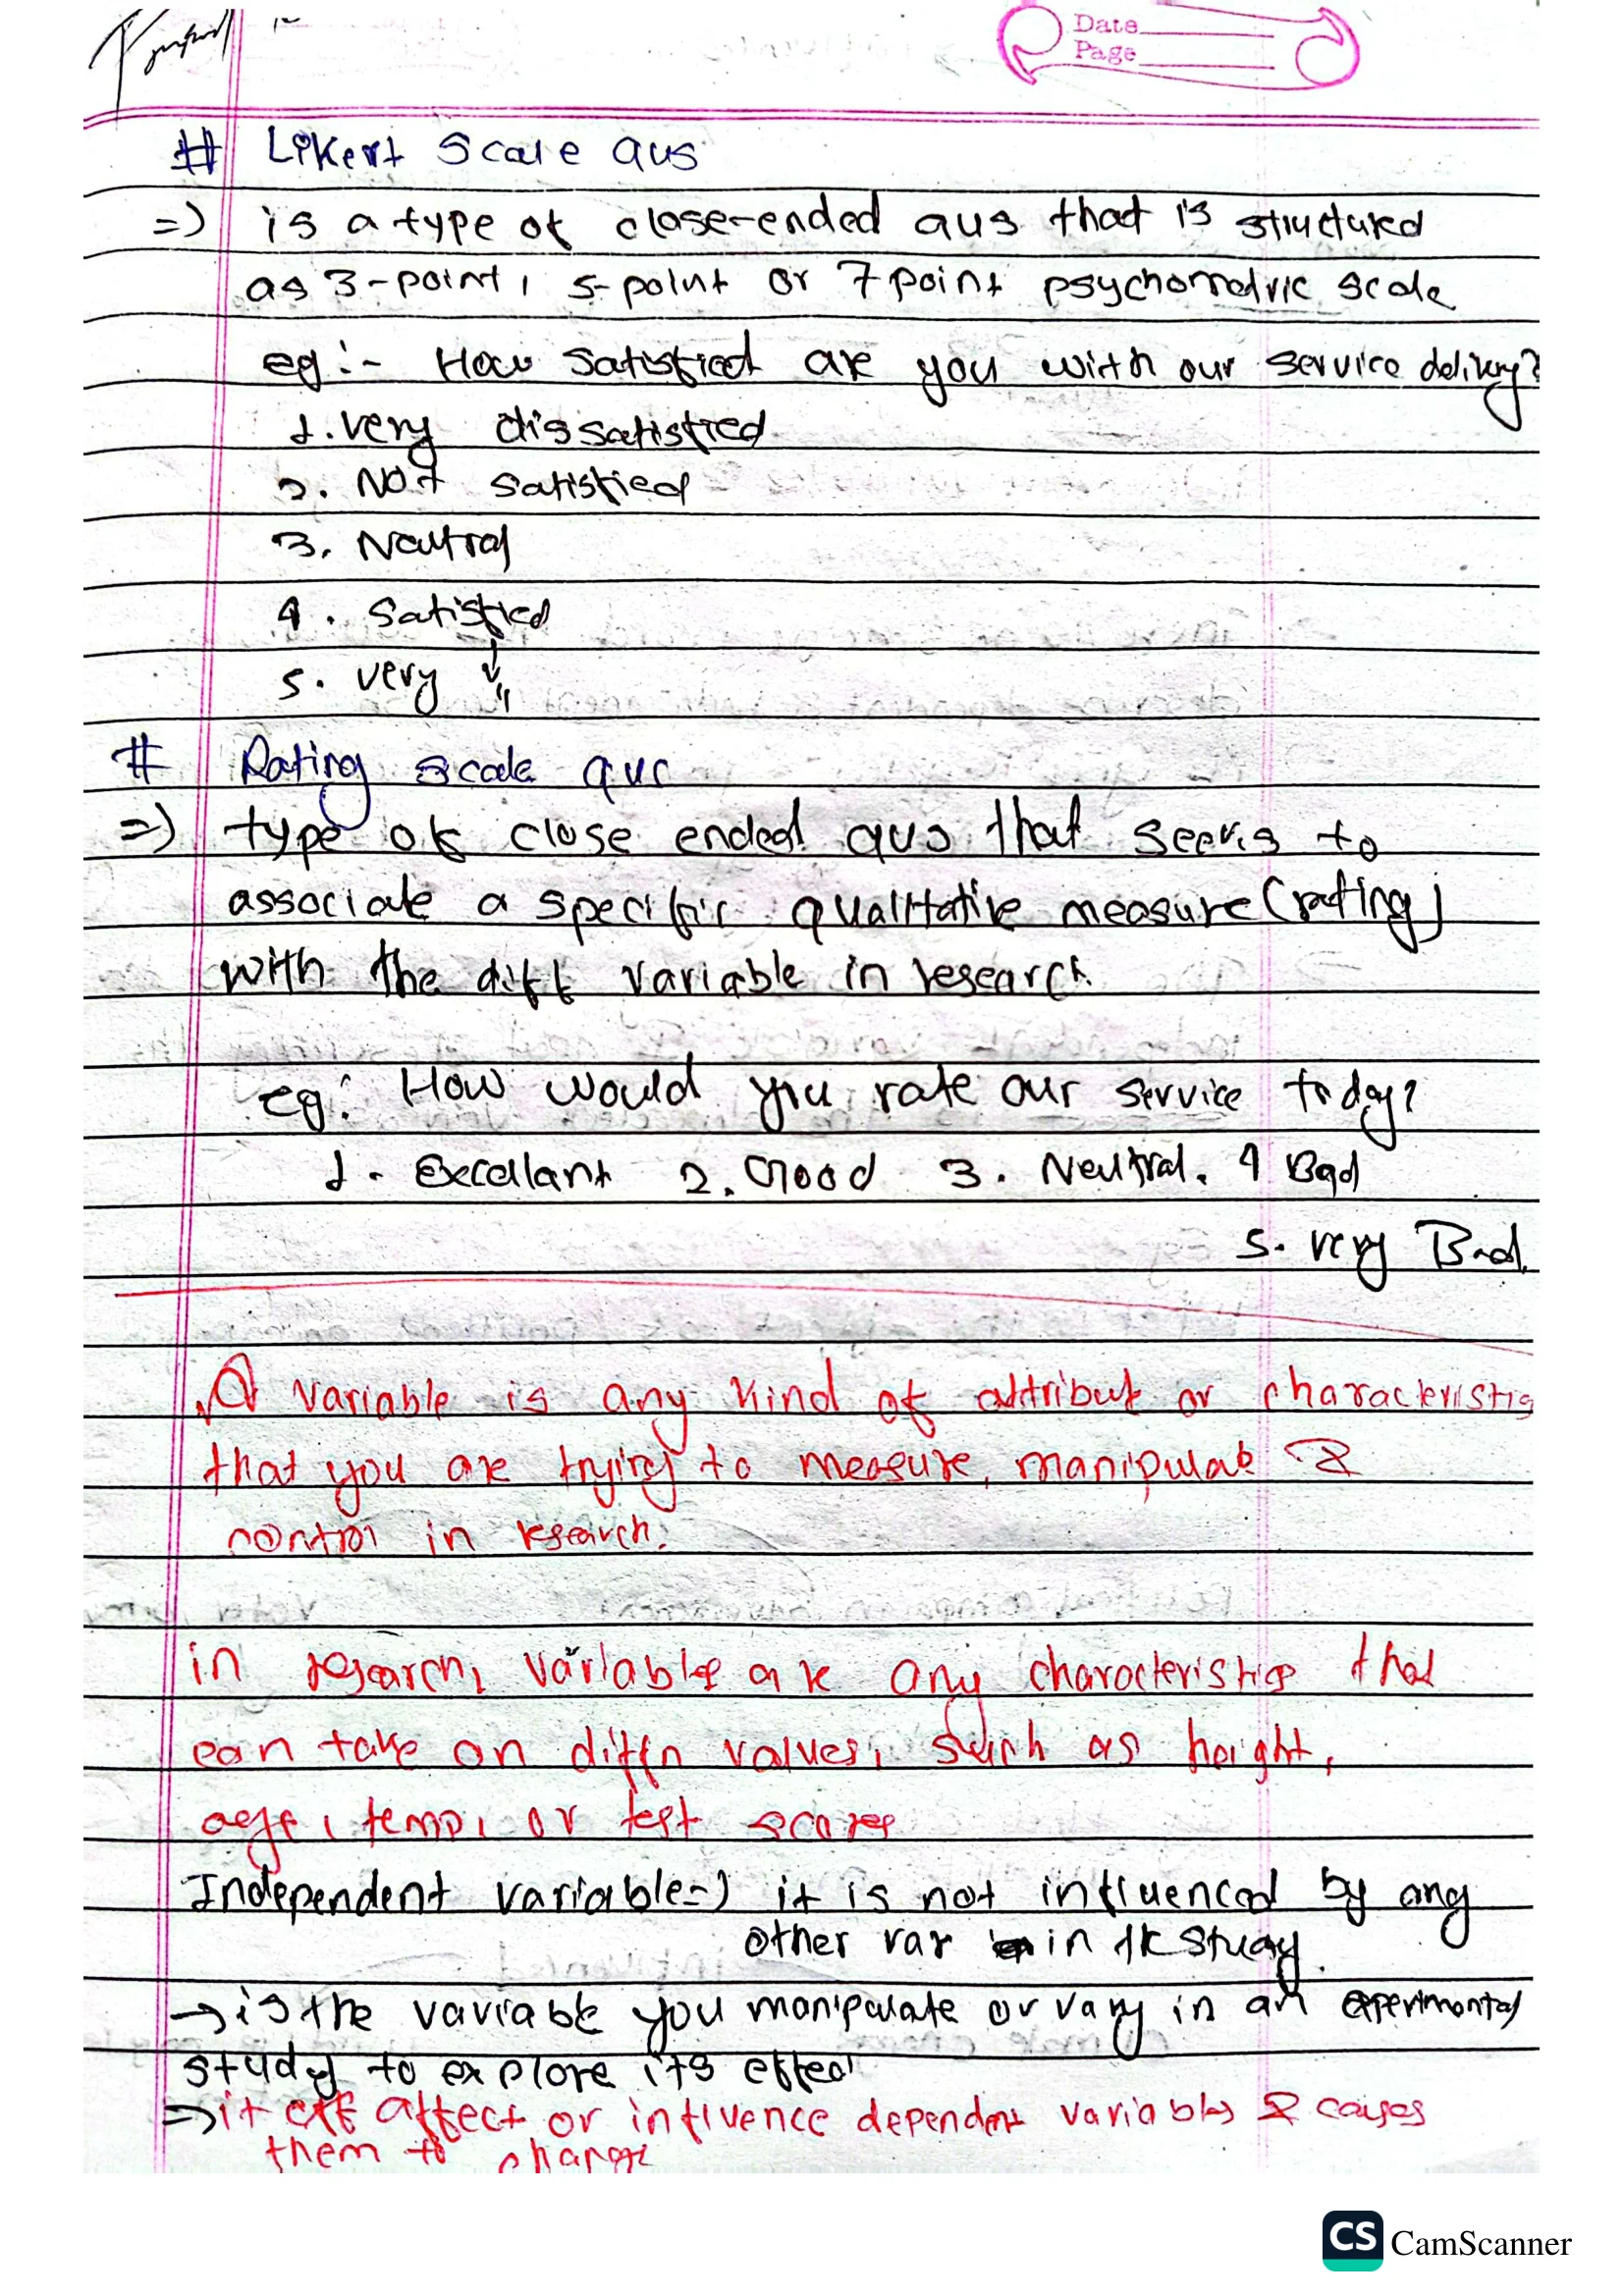 Date
Page
# Likert Scale qus
=) is a type of close-ended qus that is structured
as 3-point, 5-point or 7 point psychometric scale
eg:- How satisfied are you with our service delivery?
1. very dissatisfied
2. Not satisfied
3. Neutral
4. Satisfied
5. very ↓ "
# Rating scale qus
=) type of close ended qus that seeks to
associate a specific qualitative measure (rating)
with the diff variable in research.
eg: How would you rate our service today?
1. Excellant 2. Good 3. Neutral. 4 Bad
5. very Bad.
A variable is any kind of attribut or characteristic
that you are trying to measure, manipulate &
control in research.
in research, variables are any characteristics that
can take on diffn values, such as height,
age, temp, or test scores
Independent variable=) it is not influenced by any
other var in the study.
→ is the variable you manipulate or vary in an experimental
study to explore its effect
=> it affect or influence dependent variables & causes
them to change
CS CamScanner